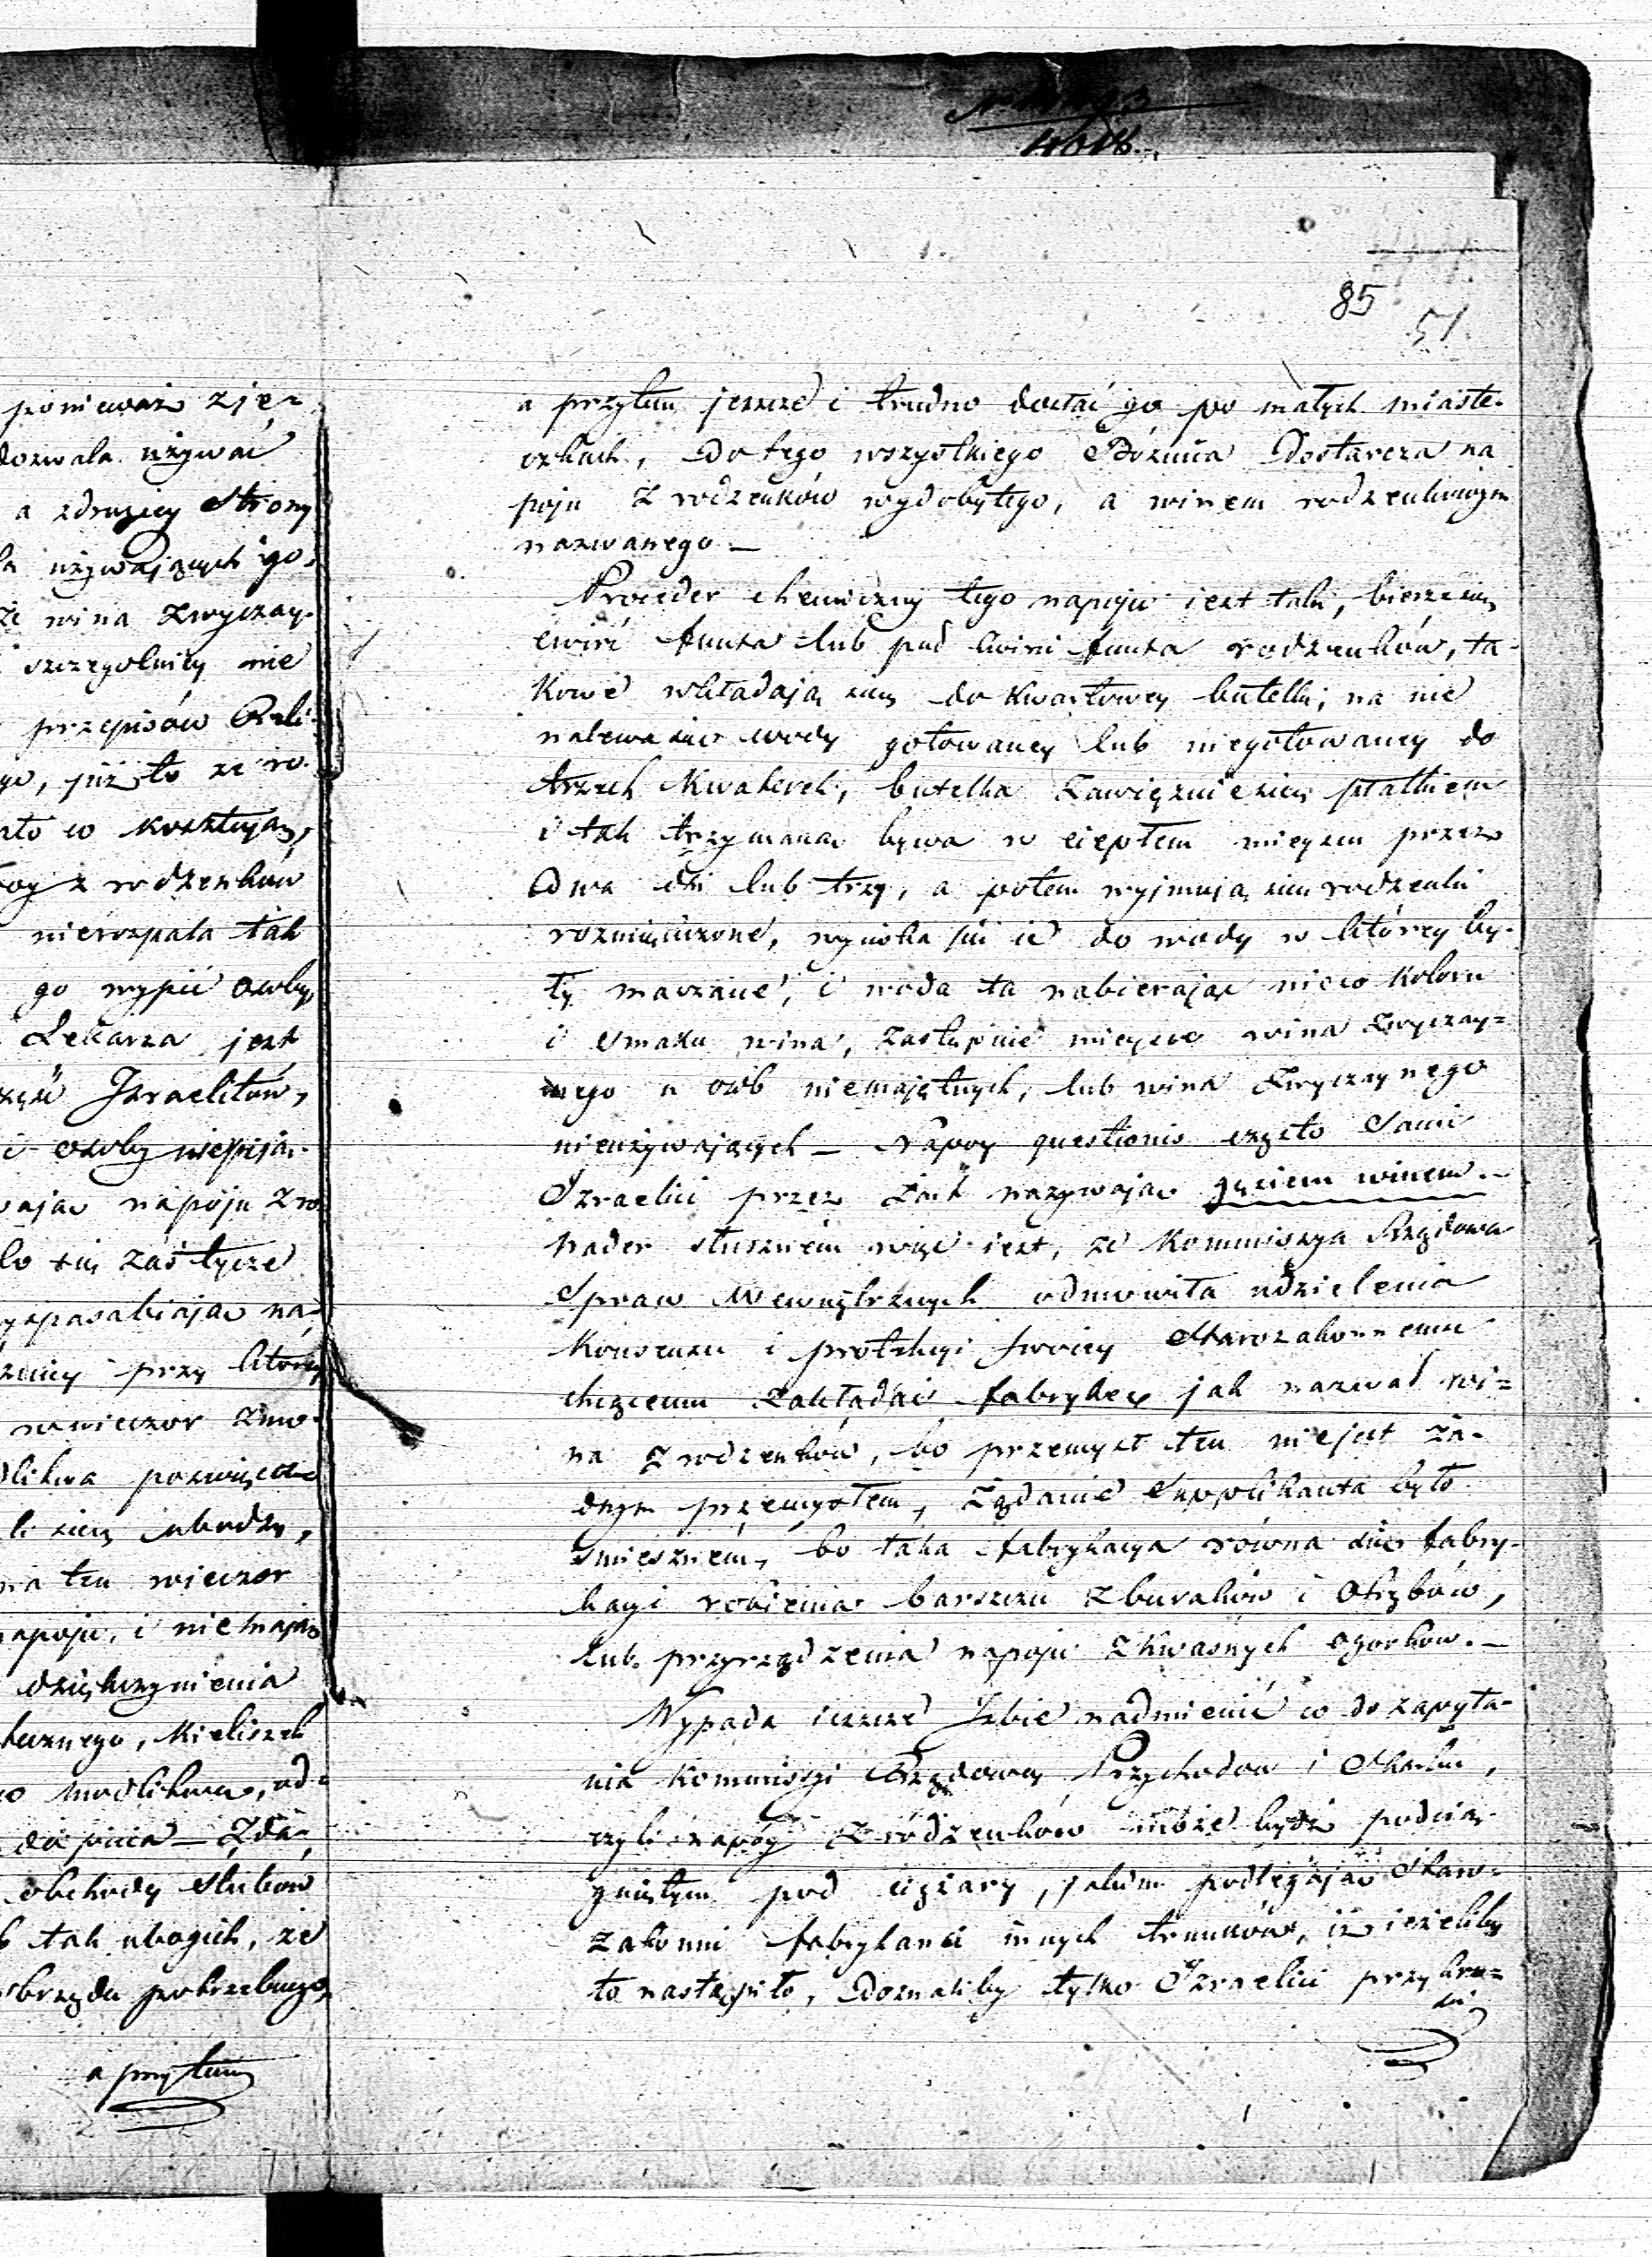 4018.
85
51
ponieważ z je-
dozwala używać
a z drugiey Strony
używających go
wina zwyczay-
szczegolniey nie
przepisów Reli-
już to ze w
kosztują,
z rodzenków
nierozpala tak
go wypić osoby,
Lekarza jest
Izraelitów,
osoby niepija-
napoju z ro
się zaś tycze
sposabiaiąc na-
przy którey
wieczor zmo-
poświęca
się ubodzy,
na ten wieczor
napoju, i niemając
uskutecznienia
Kieliszek
modlitwa, od-
picia — Zda-
obchody ślubów
tak ubogich, że
obrzędu potrzebnego,
a przytem
a przytem jeszcze i trudno dostać go po małych miaste-
czkach, do tego wszystkiego Bóżnica Dostarcza na
poju z rodzenków wydobytego, a winem rodzenkowym
nazwanego —
Proceder chemiczny tego napoju iest taki, bierze się
ćwirć funta lub puł ćwirci funta rodzenków, ta-
kowe wkładają się do kwartowey butelki, na nie
nalewa się wody gotowaney lub niegotowaney do
trzech kwaterek, butelka zawięznie się płatkiem
i tak trzymana bywa w ciepłem mieyscu przez
dwa dni lub trzy, a potem wyjmują się rodzenki
rozmiękczone, wyciska się ie do wody w którey by-
ły maczane, i woda ta nabierając nieco koloru
i smaku wina, zastępuie mieysce wina zwyczay-
nego u osób niemajętnych, lub wina zwyczaynego
nieużywających — Napoy questionis często sami
Izraelici przez żart nazywają gęsiem winem. —
Nader słusznem więc iest, że Kommissya Rządowa
Spraw Wewnętrznych odmówiła udzielenia
Konsensu i protekcyi swoiey Starozakonnemu
chcącemu zakładać fabrykę jak nazwał wi-
na z rodzenków, bo przemysł ten niejest ża-
dnym przemysłem, Żądanie Supplikanta było
śmiesznem, bo taka fabrykacya równa się fabry-
kacyi robienia barszczu z buraków i otrębów,
lub przyrządzenia napoju z kwasnych ogorków. —
Wypada ieszcze Izbie nadmienić co do zapyta-
nia Kommissyi Rządowey Przychodów i Skarbu,
czyli napóy z rodzenków może bydź podcią-
gniętym pod ciężary, jakim podlegają Staro-
zakonni fabrykanci innych trunków, iż ieżeliby
to nastąpiło, doznaliby tylko Izraelici przykro-
ści